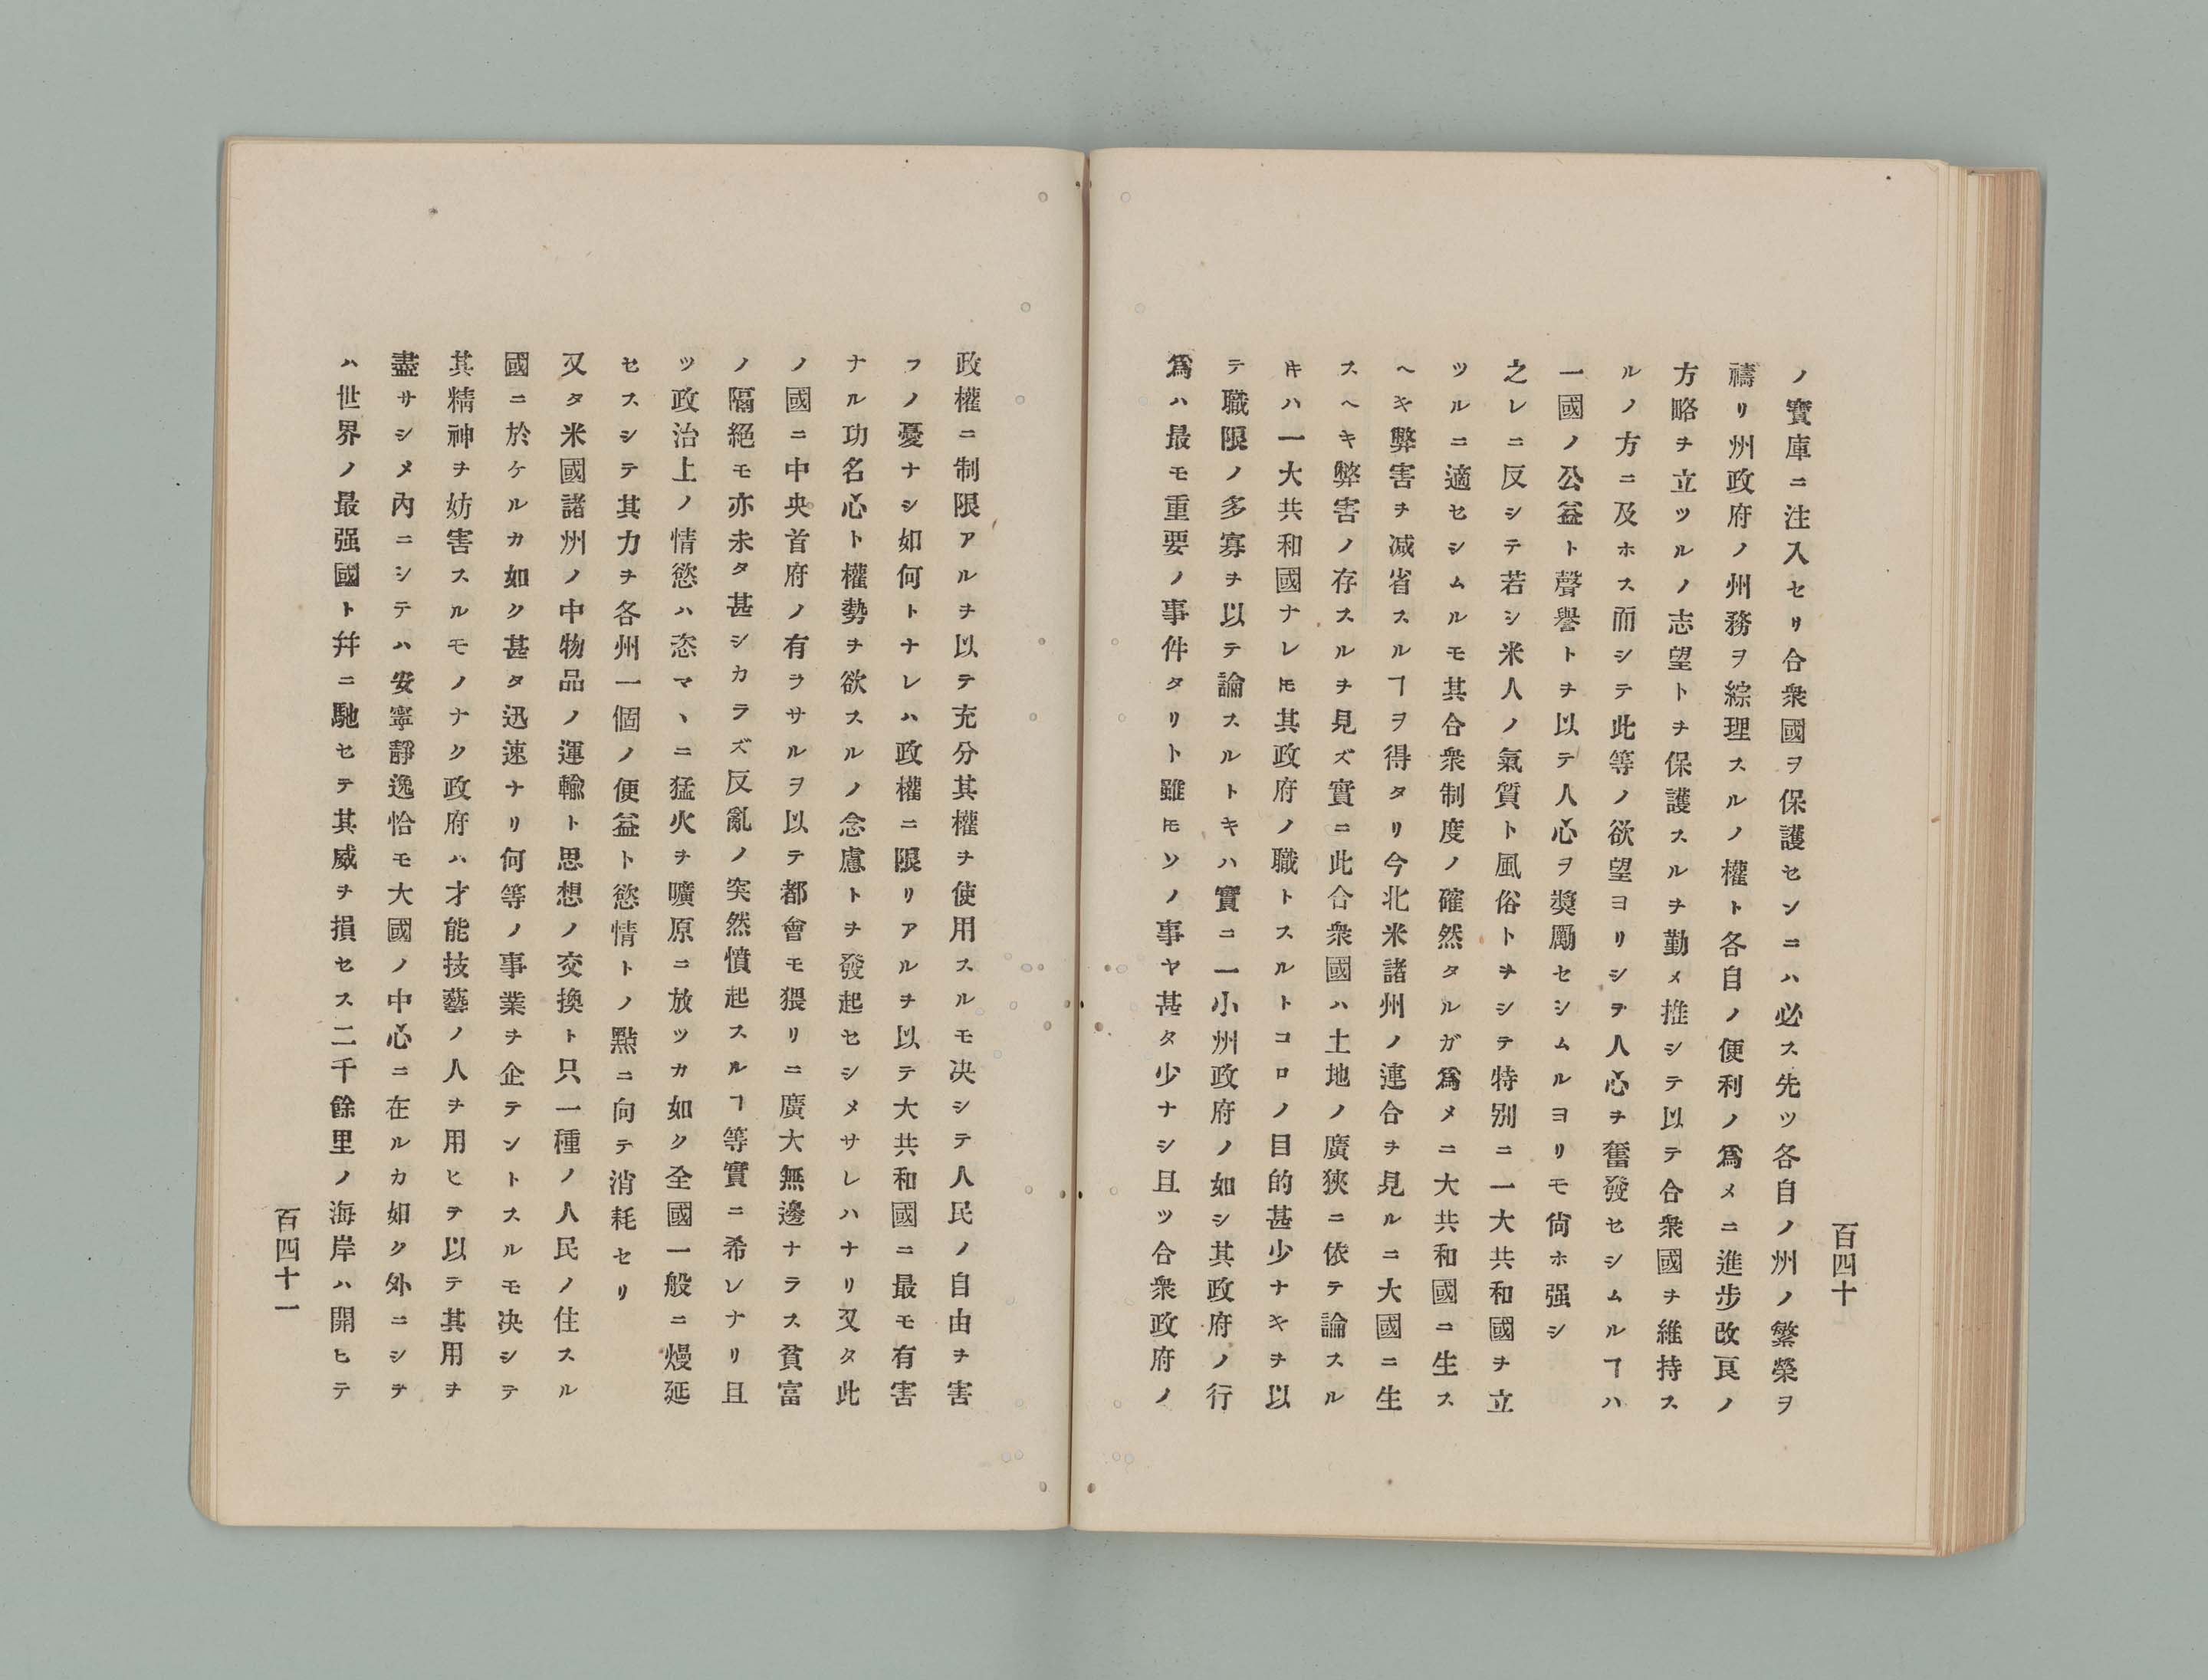 百四十
ノ寶庫ニ注入セリ合衆國ヲ保護センニハ必ス先ツ各自ノ州ノ繁榮ヲ
禱リ州政府ノ州務ヲ綜理スルノ權ト各自ノ便利ノ爲メニ進步改良ノ
方略ヲ立ツルノ志望トヲ保護スルヲ勤メ推シテ以テ合衆國ヲ維持ス
ルノ方ニ及ホス而シテ此等ノ欲望ヨリシテ人心ヲ奮發セシムルヿハ
一國ノ公益ト聲譽トヲ以テ人心ヲ奬勵セシムルヨリモ尙ホ强シ
之レニ反シテ若シ米人ノ氣質ト風俗トヲシテ特別ニ一大共和國ヲ立
ツルニ適セシムルモ其合衆制度ノ確然タルガ爲メニ大共和國ニ生ス
ヘキ弊害ヲ减省スルヿヲ得タリ今北米諸州ノ連合ヲ見ルニ大國ニ生
スヘキ弊害ノ存スルヲ見ズ實ニ此合衆國ハ土地ノ廣狹ニ依テ論スル
𪜈ハ一大共和國ナレ𪜈其政府ノ職トスルトコロノ目的甚少ナキヲ以
テ職限ノ多寡ヲ以テ論スルトキハ實ニ一小州政府ノ如シ其政府ノ行
爲ハ最モ重要ノ事件タリト雖𪜈ソノ事ヤ甚タ少ナシ且ツ合衆政府ノ
政權ニ制限アルヲ以テ充分其權ヲ使用スルモ决シテ人民ノ自由ヲ害
フノ憂ナシ如何トナレハ政權ニ限リアルヲ以テ大共和國ニ最モ有害
ナル功名心ト權勢ヲ欲スルノ念慮トヲ發起セシメサレハナリ又タ此
ノ國ニ中央首府ノ有ラサルヲ以テ都會モ猥リニ廣大無邊ナラス貧富
ノ隔絕モ亦未タ甚シカラズ反亂ノ突然憤起スルヿ等實ニ希レナリ且
ツ政治上ノ情慾ハ恣マヽニ猛火ヲ曠原ニ放ツカ如ク全國一般ニ熳延
セスシテ其力ヲ各州一個ノ便益ト慾情トノ點ニ向テ消耗セリ
又タ米國諸州ノ中物品ノ運輸ト思想ノ交換ト只一種ノ人民ノ住スル
國ニ於ケルカ如ク甚タ迅速ナリ何等ノ事業ヲ企テントスルモ决シテ
其精神ヲ妨害スルモノナク政府ハ才能技藝ノ人ヲ用ヒテ以テ其用ヲ
盡サシメ內ニシテハ安寧靜逸恰モ大國ノ中心ニ在ルカ如ク外ニシテ
ハ世界ノ最强國ト幷ニ馳セテ其威ヲ損セス二千餘里ノ海岸ハ開ヒテ
百四十一